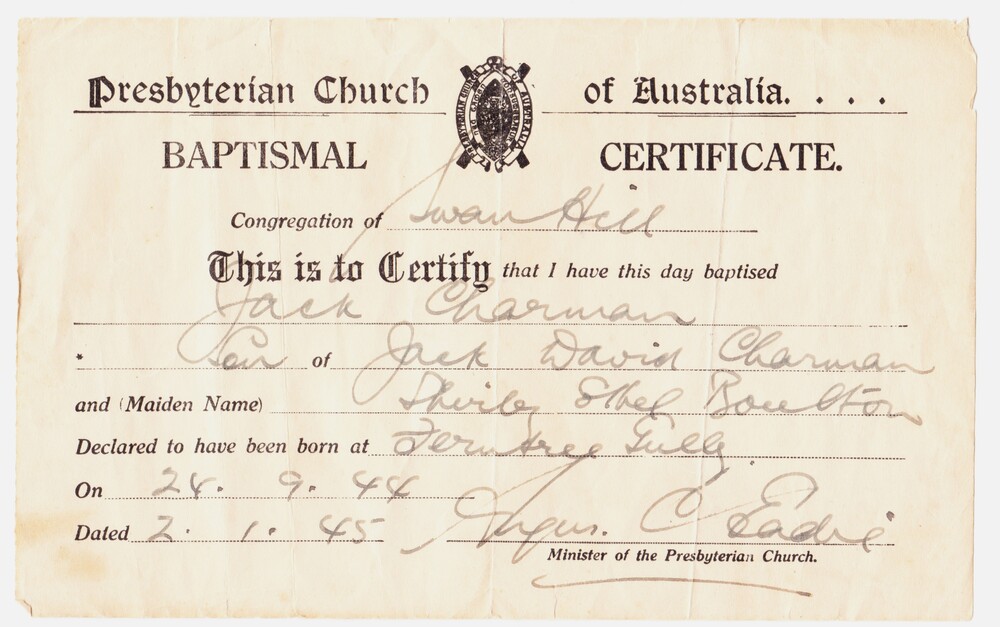 Presbyterian Church of Australia. . . .
BAPTISMAL CERTIFICATE.
Congregation of Swan Hill
This is to Certify that I have this day baptised
Jack Charman
* Son of Jack David Charman
and (Maiden Name) Shirley Ethel Boulton
Declared to have been born at Ferntree Gully
On 24. 9. 44
Dated 2. 1. 45 Angus. C Eadie
Minister of the Presbyterian Church.